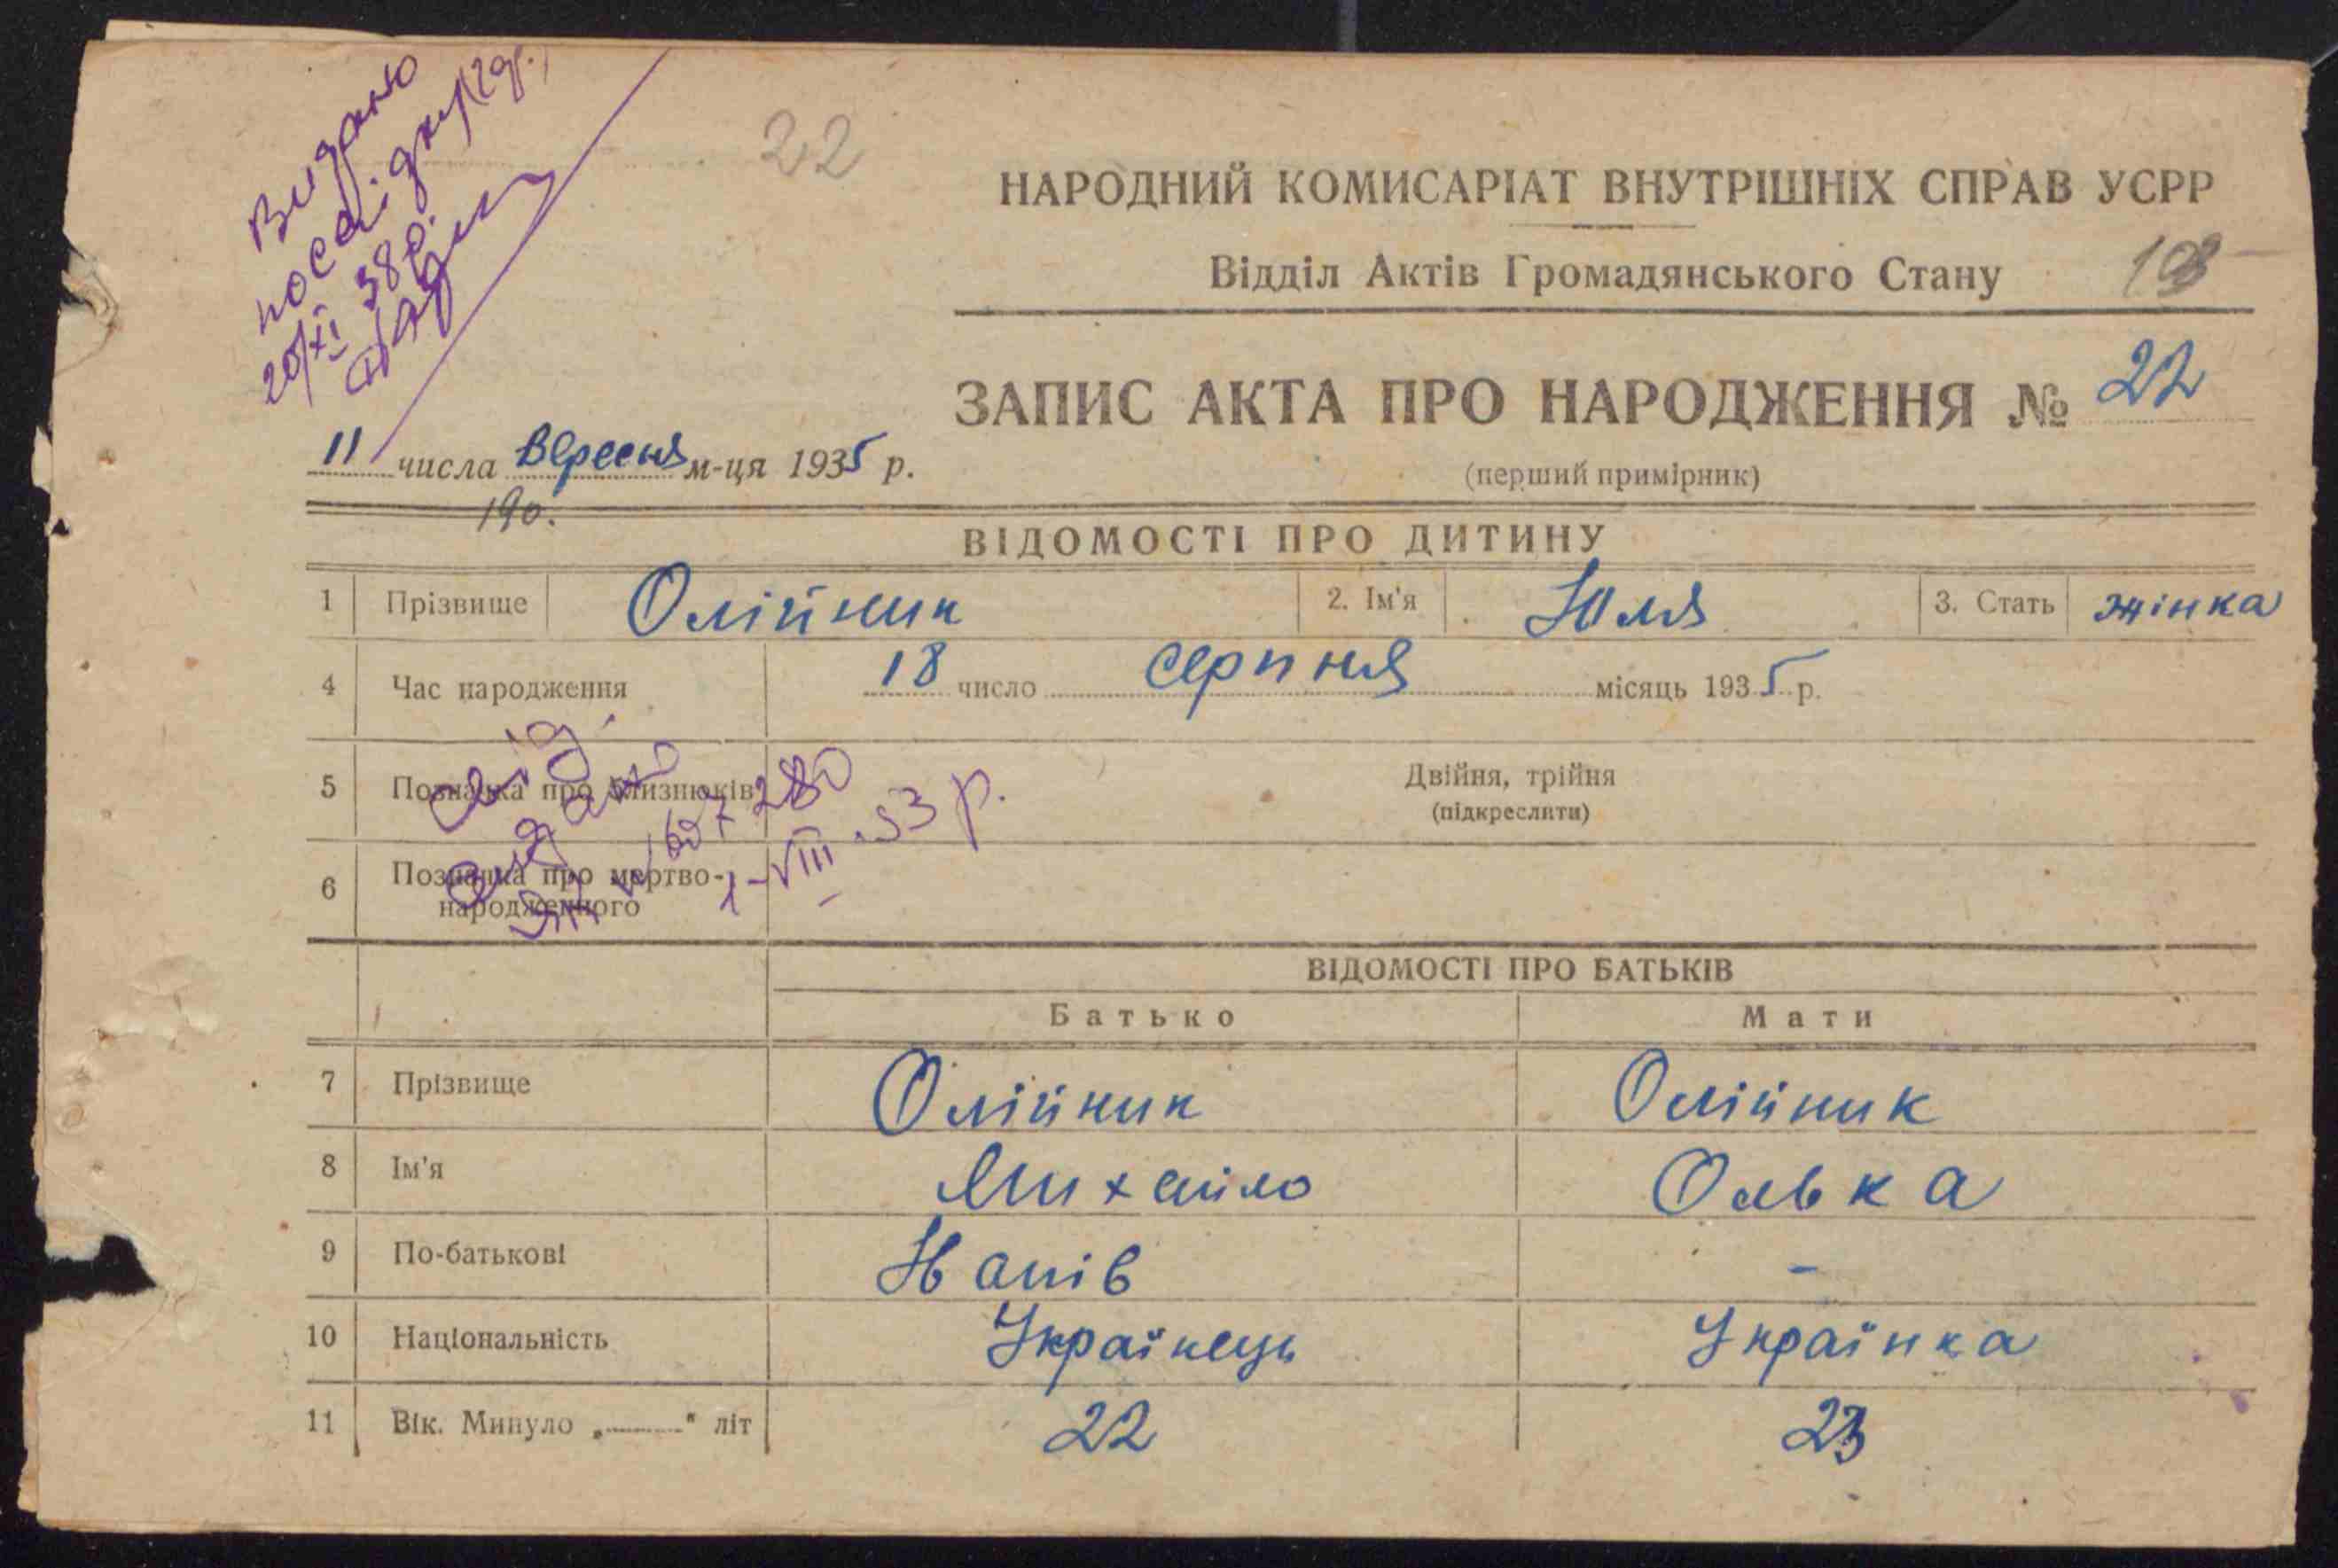 Видано
посвідку
20/XI 38р.
22
НАРОДНИЙ КОМИСАРІАТ ВНУТРІШНІХ СПРАВ УСРР
Відділ Актів Громадянського Стану
ЗАПИС АКТА ПРО НАРОДЖЕННЯ № 22
(перший примірник)
11 числа Вересня м-ця 1935 р.
190.
ВІДОМОСТІ ПРО ДИТИНУ
1 Прізвище Олійник 2. Ім'я Юля 3. Стать жінка
4 Час народження 18 число серпня місяць 1935 р.
5 Позначка про близнюків Двійня, трійня
(підкреслити)
6 Позначка про мертво-
народженного
Свід.
видано
1-VIII-53 р.
ВІДОМОСТІ ПРО БАТЬКІВ
Батько Мати
7 Прізвище Олійник Олійник
8 Ім'я Михайло Олька
9 По-батькові -
10 Національність Українець Українка
11 Вік. Минуло „ " літ 22 23